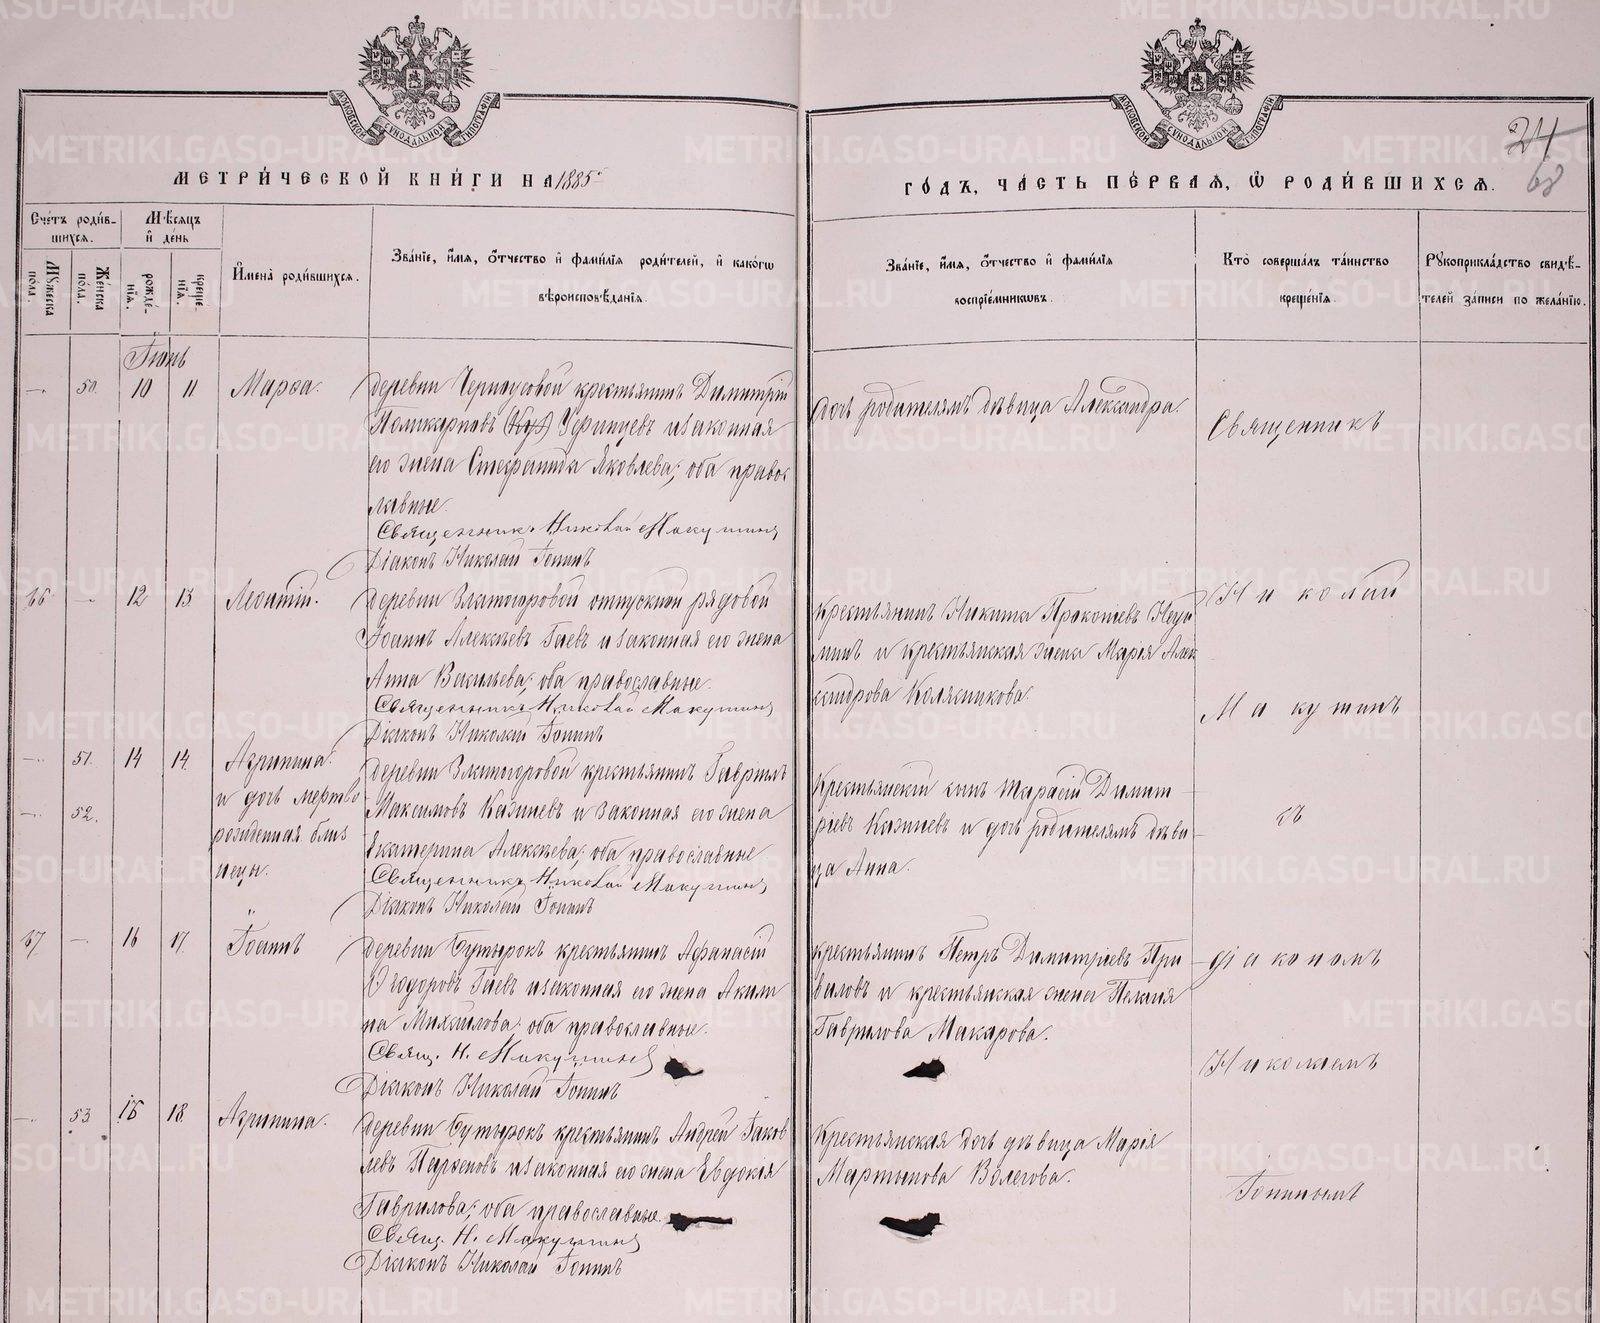 МОСКОВСКОЙ СѴНОДАЛЬНОЙ ТИПОГРАФІИ
МОСКОВСКОЙ СѴНОДАЛЬНОЙ ТИПОГРАФІИ
24
68
МЕТРИ́ЧЕСКОЙ КНИ́ГИ НА 1885
ГО́ДЪ, ЧА́СТЬ ПЕ́РВАѦ, Ѡ҆ РОДИ́ВШИХСѦ.
Сче́тъ роди́в-
шихсѧ.
Мѣ́сѧцъ
и҆ де́нь
Мꙋ́жеска
пола.
Же́нска
по́ла.
рожде́-
нїѧ.
креще-
нїѧ.
И҆мена̀ роди́вшихсѧ.
Зва́нїе, и҆́мѧ, ѻ҆́тчество и҆ фами́лїѧ роди́телей, и҆ како́гѡ
вѣроисповѣ́данїѧ.
Зва́нїе, и҆́мѧ, ѻ҆́тчество и҆ фами́лїѧ
воспрїе́мникѡвъ.
Кто̀ соверша́лъ та́инство
креще́нїѧ.
Рꙋкоприкла́дство свидѣ́-
телей за́писи по жела́нїю.
Іюнь
— 50. 10 11 Марѳа.
деревни Черноусовой крестьянинъ Димитрій
Поликарповъ Уфинцевъ и законная
его жена Стефанида Яковлева; оба правос
лавные.
Священникъ Николай Макушинъ
Діаконъ Николай Іонинъ
дочь родителямъ дѣвица Александра.
Священникъ
36 — 12 13 Леонтій.
деревни Златогоровой отпускной рядовой
Іоаннъ Алексѣевъ Гаевъ и законная его жена
Анна Васильева; оба православные.
Священникъ Николай Макушинъ
Діаконъ Николай Іонинъ
крестьянинъ Никита Прокопіевъ
и крестьянская жена Марія Алек
сандрова Колясникова.
Николай
Макушинъ
— 51. 14 14 Агрипина.
— 52. и дочь мертво
рожденная близ
нецы.
деревни Златогоровой крестьянинъ Гавріилъ
Максимовъ Казанцевъ и законная его жена
Екатерина Алексѣева; оба православные
Священникъ Николай Макушинъ
Діаконъ Николай Іонинъ
Крестьянскій сынъ Тарасій Димит
ріевъ Казанцевъ и дочь родителямъ дѣви
ца Анна.
съ
37 — 16 17 Іоаннъ
деревни Бутырокъ крестьянинъ Афанасій
Ѳеодоровъ Гаевъ и законная его жена Акили
на Михайлова; оба православные.
Свящ. Н. Макушинъ
Діаконъ Николай Іонинъ
крестьянинъ Петръ Димитріевъ При
валовъ и крестьянская жена Пелагія
Гаврилова Макарова.
діакономъ
Николаемъ
— 53. 16 18 Агрипина.
деревни Бутырокъ крестьянинъ Андрей Іаков
левъ Парѳеновъ и законная его жена Евдокія
Гаврилова; оба православные.
Свящ. Н. Макушинъ
Діаконъ Николай Іонинъ
Крестьянская дочь дѣвица Марія
Мартынова Волегова.
Іонинымъ